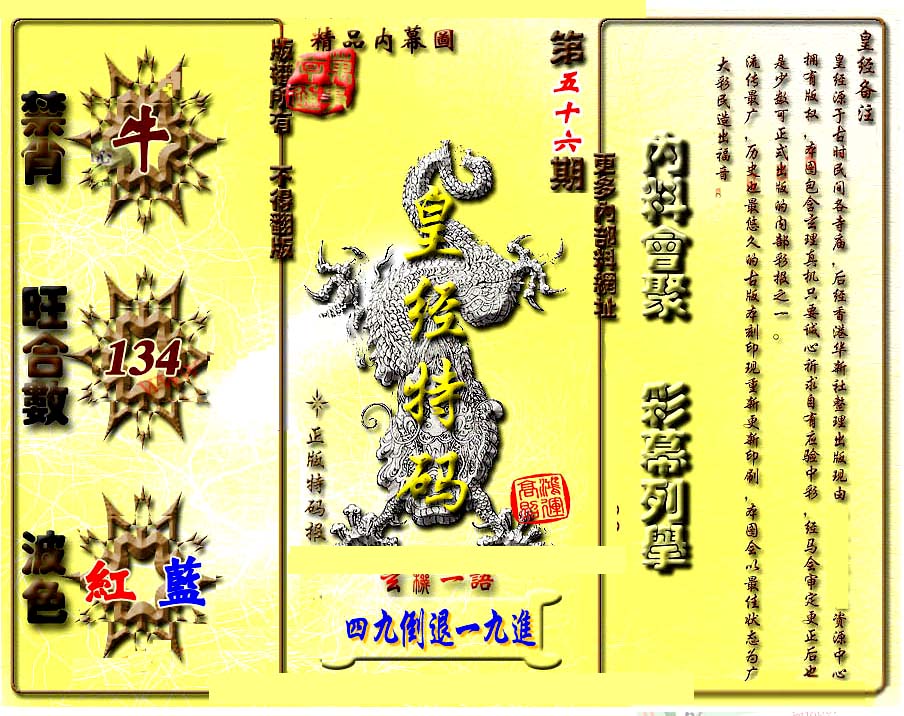 皇经备注
皇经源于古时民间各寺庙，后经香港华新社整理出版现由 资源中心
拥有版权，本图包含玄理真机只要诚心祈求自有应验中彩，经马会审定更正后也
是少数可正式出版的内部彩报之一。
流传最广，历史也最悠久的古版本刻印现重新更新印刷，本图会以最佳状态为广
大彩民造出福音。
内料會聚 彩幕列舉
更多內部料網址
第五十六期
精品内幕圖
版權所有 不得翻版
皇经特码
正版特码报
鴻運高照
玄機一語
四九倒退一九進
禁肖
牛
旺合數
134
波色
紅 藍